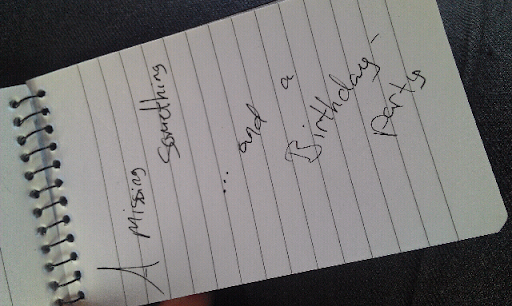 A missing
something
... and a
Birthday-
party